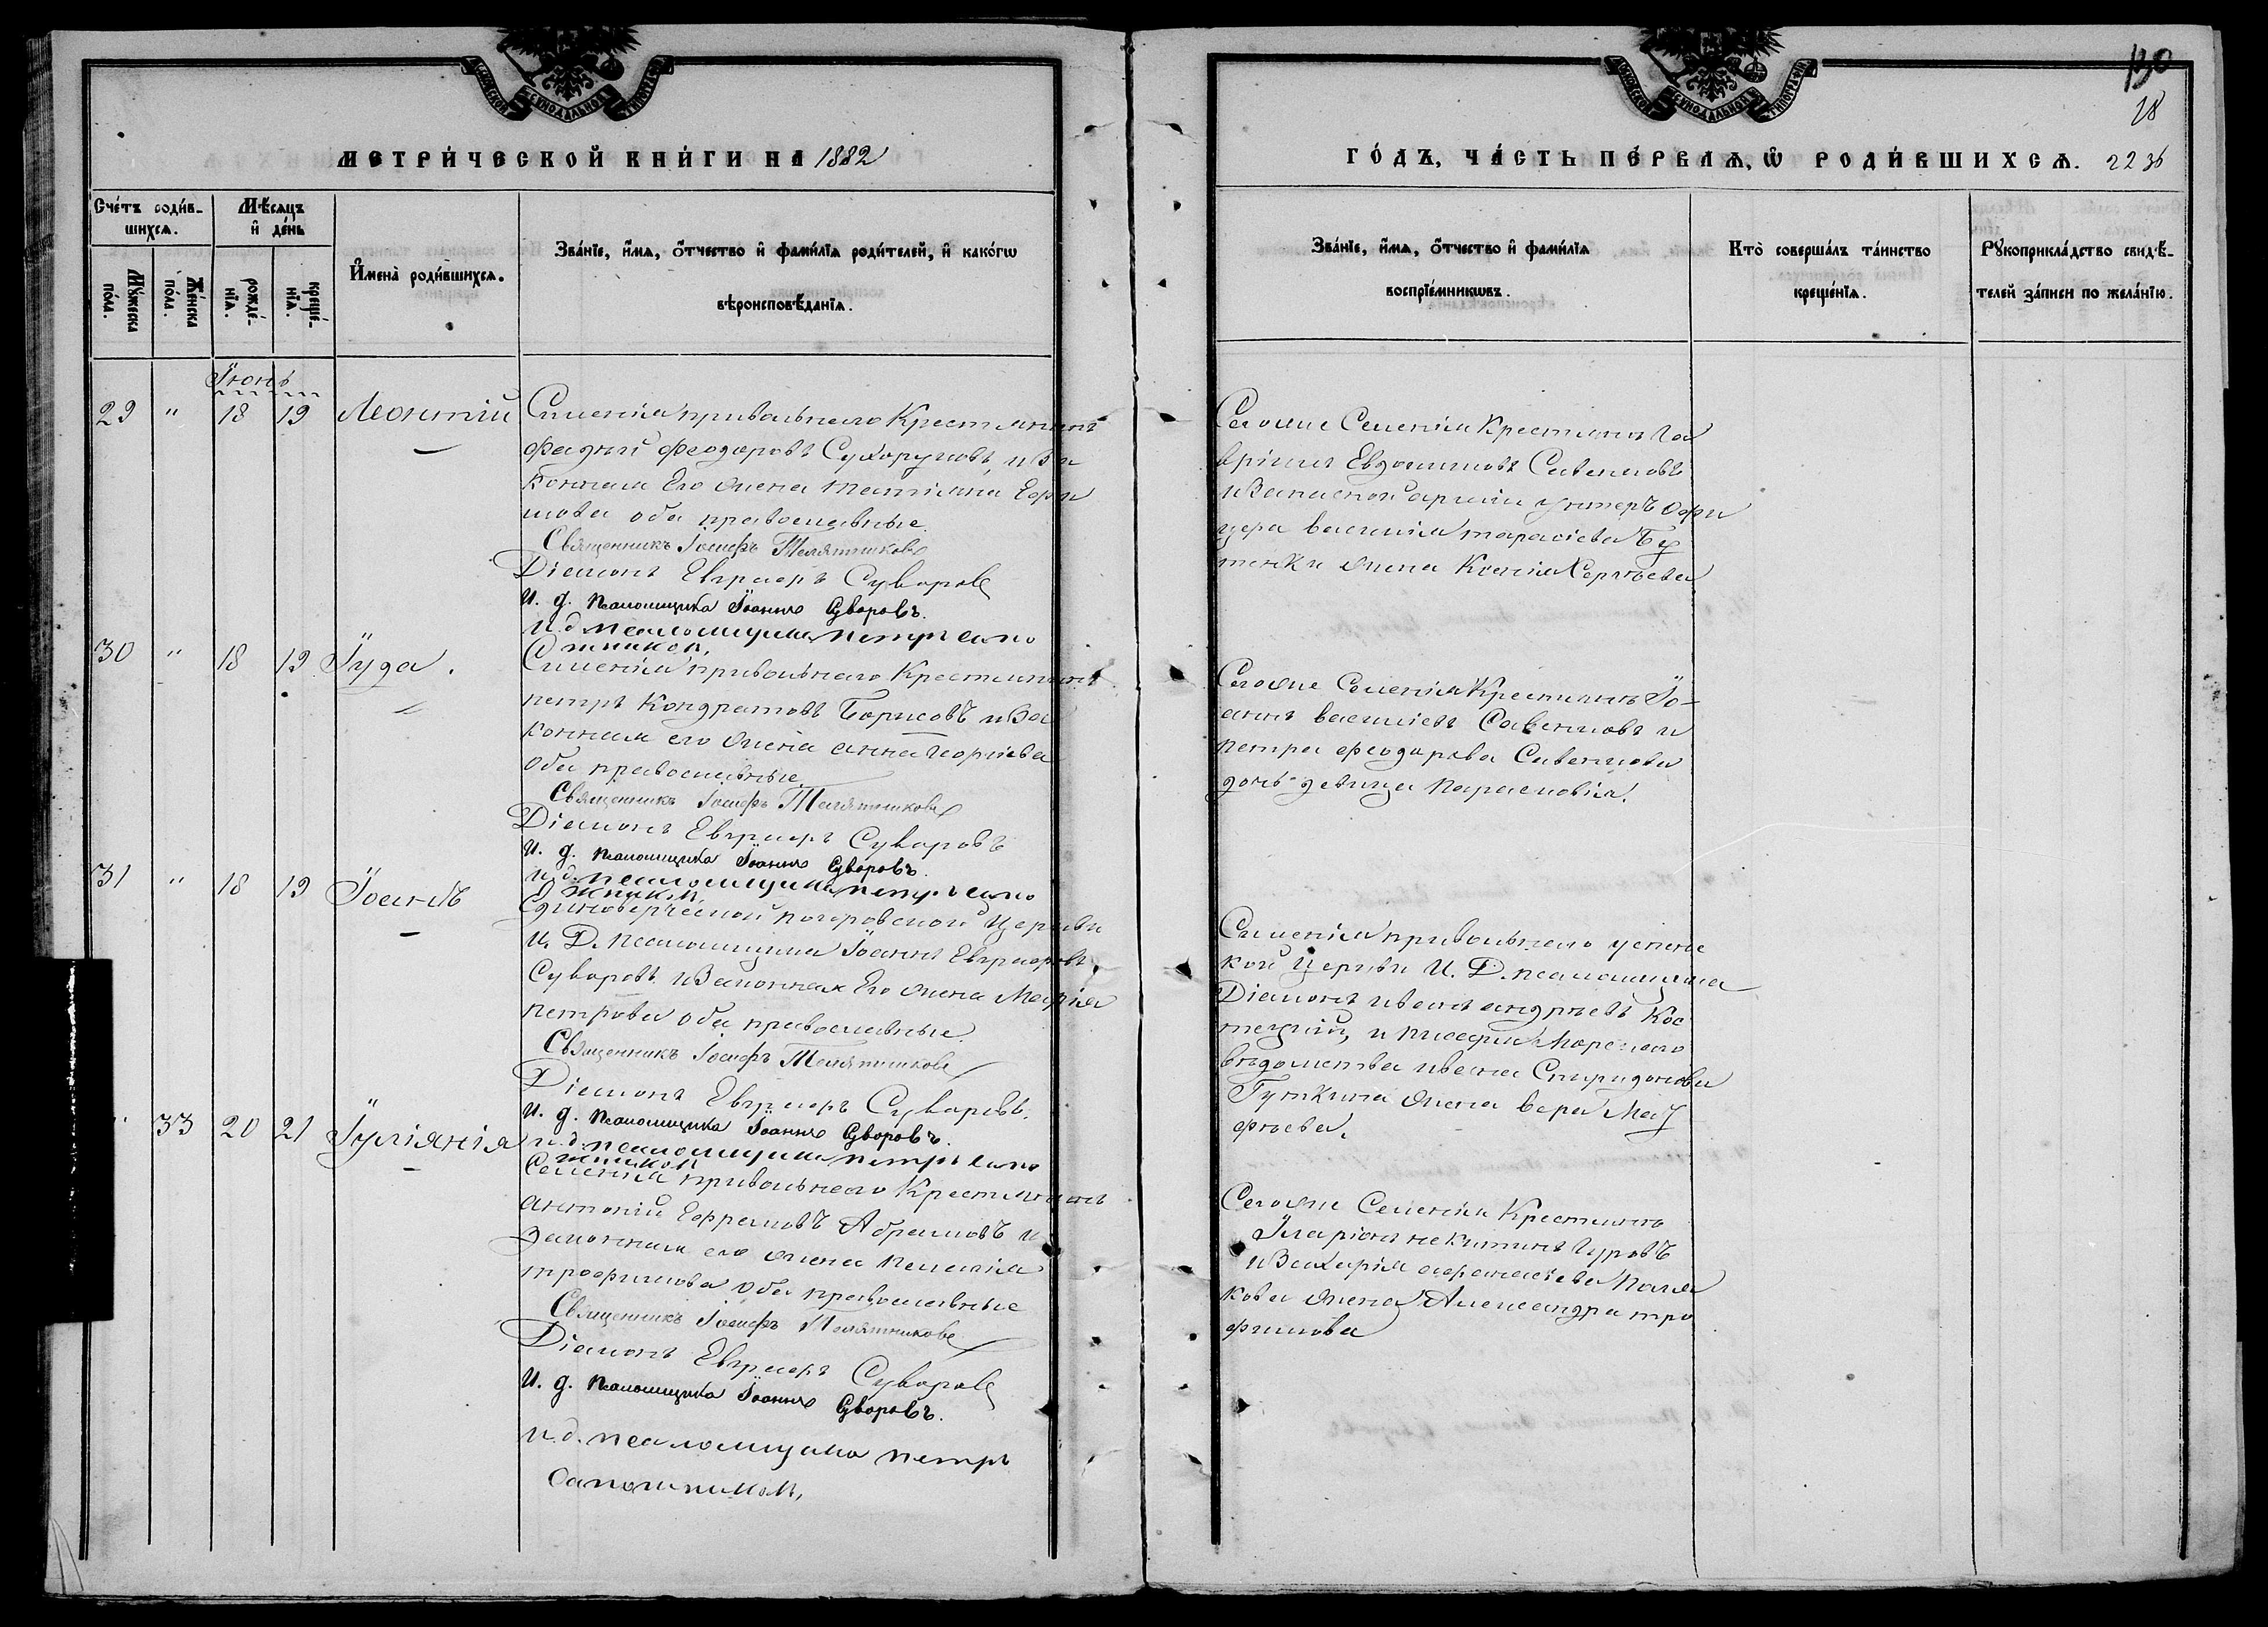 МОСКОВСКОЙ СѴНОДАЛЬНОЙ ТИПОГРАФІИ
МЕТРИ́ЧЕСКОЙ КНИ́ГИ НА 1882
Сче́тъ роди́в-
шихсѧ.
Мѣ́сѧцъ
и҆ де́нь
Мꙋ́жеска по́ла.
Же́нска по́ла.
рожде́-нїѧ.
креще́-нїѧ.
И҆мена̀ роди́вшихсѧ.
Зва́нїе, и҆́мѧ, ѻ҆́тчество и҆ фами́лїѧ роди́телей, и҆ како́гѡ
вѣроисповѣ́данїѧ.
Іюнь
29 " 18 19 Леонтій
Селенія привольнаго Крестьянинъ
Феодоровъ Сухоруковъ, и За
конная Его жена Татіяна Ефи
мова оба православные
Священникъ Іосифъ Телятниковъ
Діаконъ Суворовъ
И. д. Псаломщика Іоаннъ Суворовъ.
И.д. псаломщика петръ сапо
жниковъ,
30 " 18 19 Іуда.
Селенія привольнаго Крестьянинъ
петръ Кондратовъ Борисовъ и За
конная его жена анна георгіева
оба православные
Священникъ Іосифъ Телятниковъ
Діаконъ Суворовъ
И. д. Псаломщика Іоаннъ Суворовъ.
И.д. псаломщика петръ сапо
жниковъ,
31 " 18 19 Іоаннъ
Единоверческой покровской Церкви
И. Д. псаломщика Іоаннъ
Суворовъ и Законная Его жена Марія
петрова оба православные.
Священникъ Іосифъ Телятниковъ
Діаконъ Суворовъ
И. д. Псаломщика Іоаннъ Суворовъ.
и.д. псаломщика петръ сапо
жниковъ
" 33 20 21 Іуліянія
Селенія привольнаго Крестьянинъ
антоній Ефремовъ Абрамовъ и
Законная его жена пелагія
трофимова оба православные
Священникъ Іосифъ Телятниковъ
Діаконъ Суворовъ
И. д. Псаломщика Іоаннъ Суворовъ.
И.д. псаломщика петръ
сапожниковъ,
130
18
МОСКОВСКОЙ СѴНОДАЛЬНОЙ ТИПОГРАФІИ
ГО́ДЪ, ЧА́СТЬ ПЕ́РВАѦ, Ѡ҆ РОДИ́ВШИХСѦ. 22 36
Зва́нїе, и҆́мѧ, ѻ҆́тчество и҆ фами́лїѧ
воспрїе́мникѡвъ.
Кто̀ соверша́лъ та́инство
креще́нїѧ.
Рꙋкоприкла́дство свидѣ́-
телей за́писи по жела́нїю.
Сегоже Селенія Крестьянинъ Га
вріилъ Евдокимовъ Савенковъ
и Запасной арміи унтеръ офи
цера василія тарасіева Бу
жена Ксенія Сергѣева
Сегоже Селенія Крестьянинъ Іо-
аннъ василіевъ Савенковъ и
петра феодорова Савенкова
дочь девица парасковія.
Селенія привольнаго успенс
кой Церкви И. Д. псаломщика
Діаконъ иванъ андрѣевъ Кос
и писаря Морскаго
вѣдомства ивана Спиридонова
жена вера Мат
фѣева.
Сегоже Селенія Крестьянинъ
Иларіонъ никитинъ Гуровъ
и Захарія афанасіева поля
кова жена Александра тро
фимова